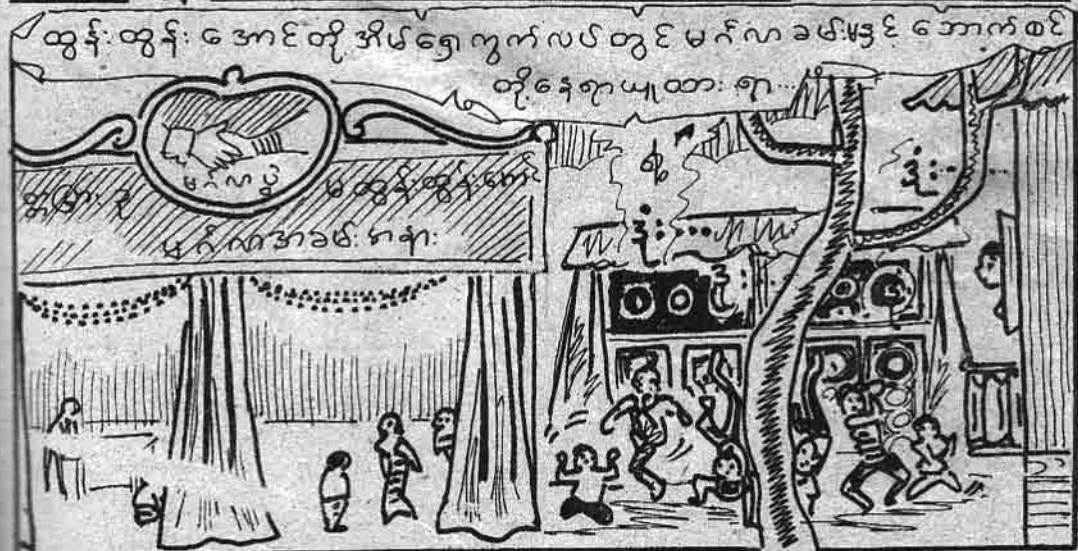 ထွန်းထွန်း အောင်တို့ အိမ်ရှေ့ကွက်လပ်တွင် မင်္ဂလာခမ်းမနှင့် ဘောက်စင်
တို့နေရာယူထားရာ...
မင်္ဂလာပွဲ
မထွန်းထွန်းအောင်
မင်္ဂလာအခမ်းအနား
ဒုံး...
ဒုံး...